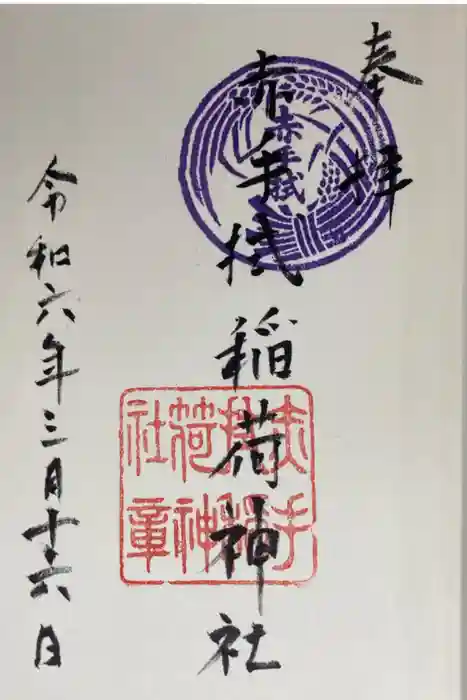 奉拝
赤手拭稲荷神社
令和六年三月十六日
赤手拭
赤手拭稲荷神社章